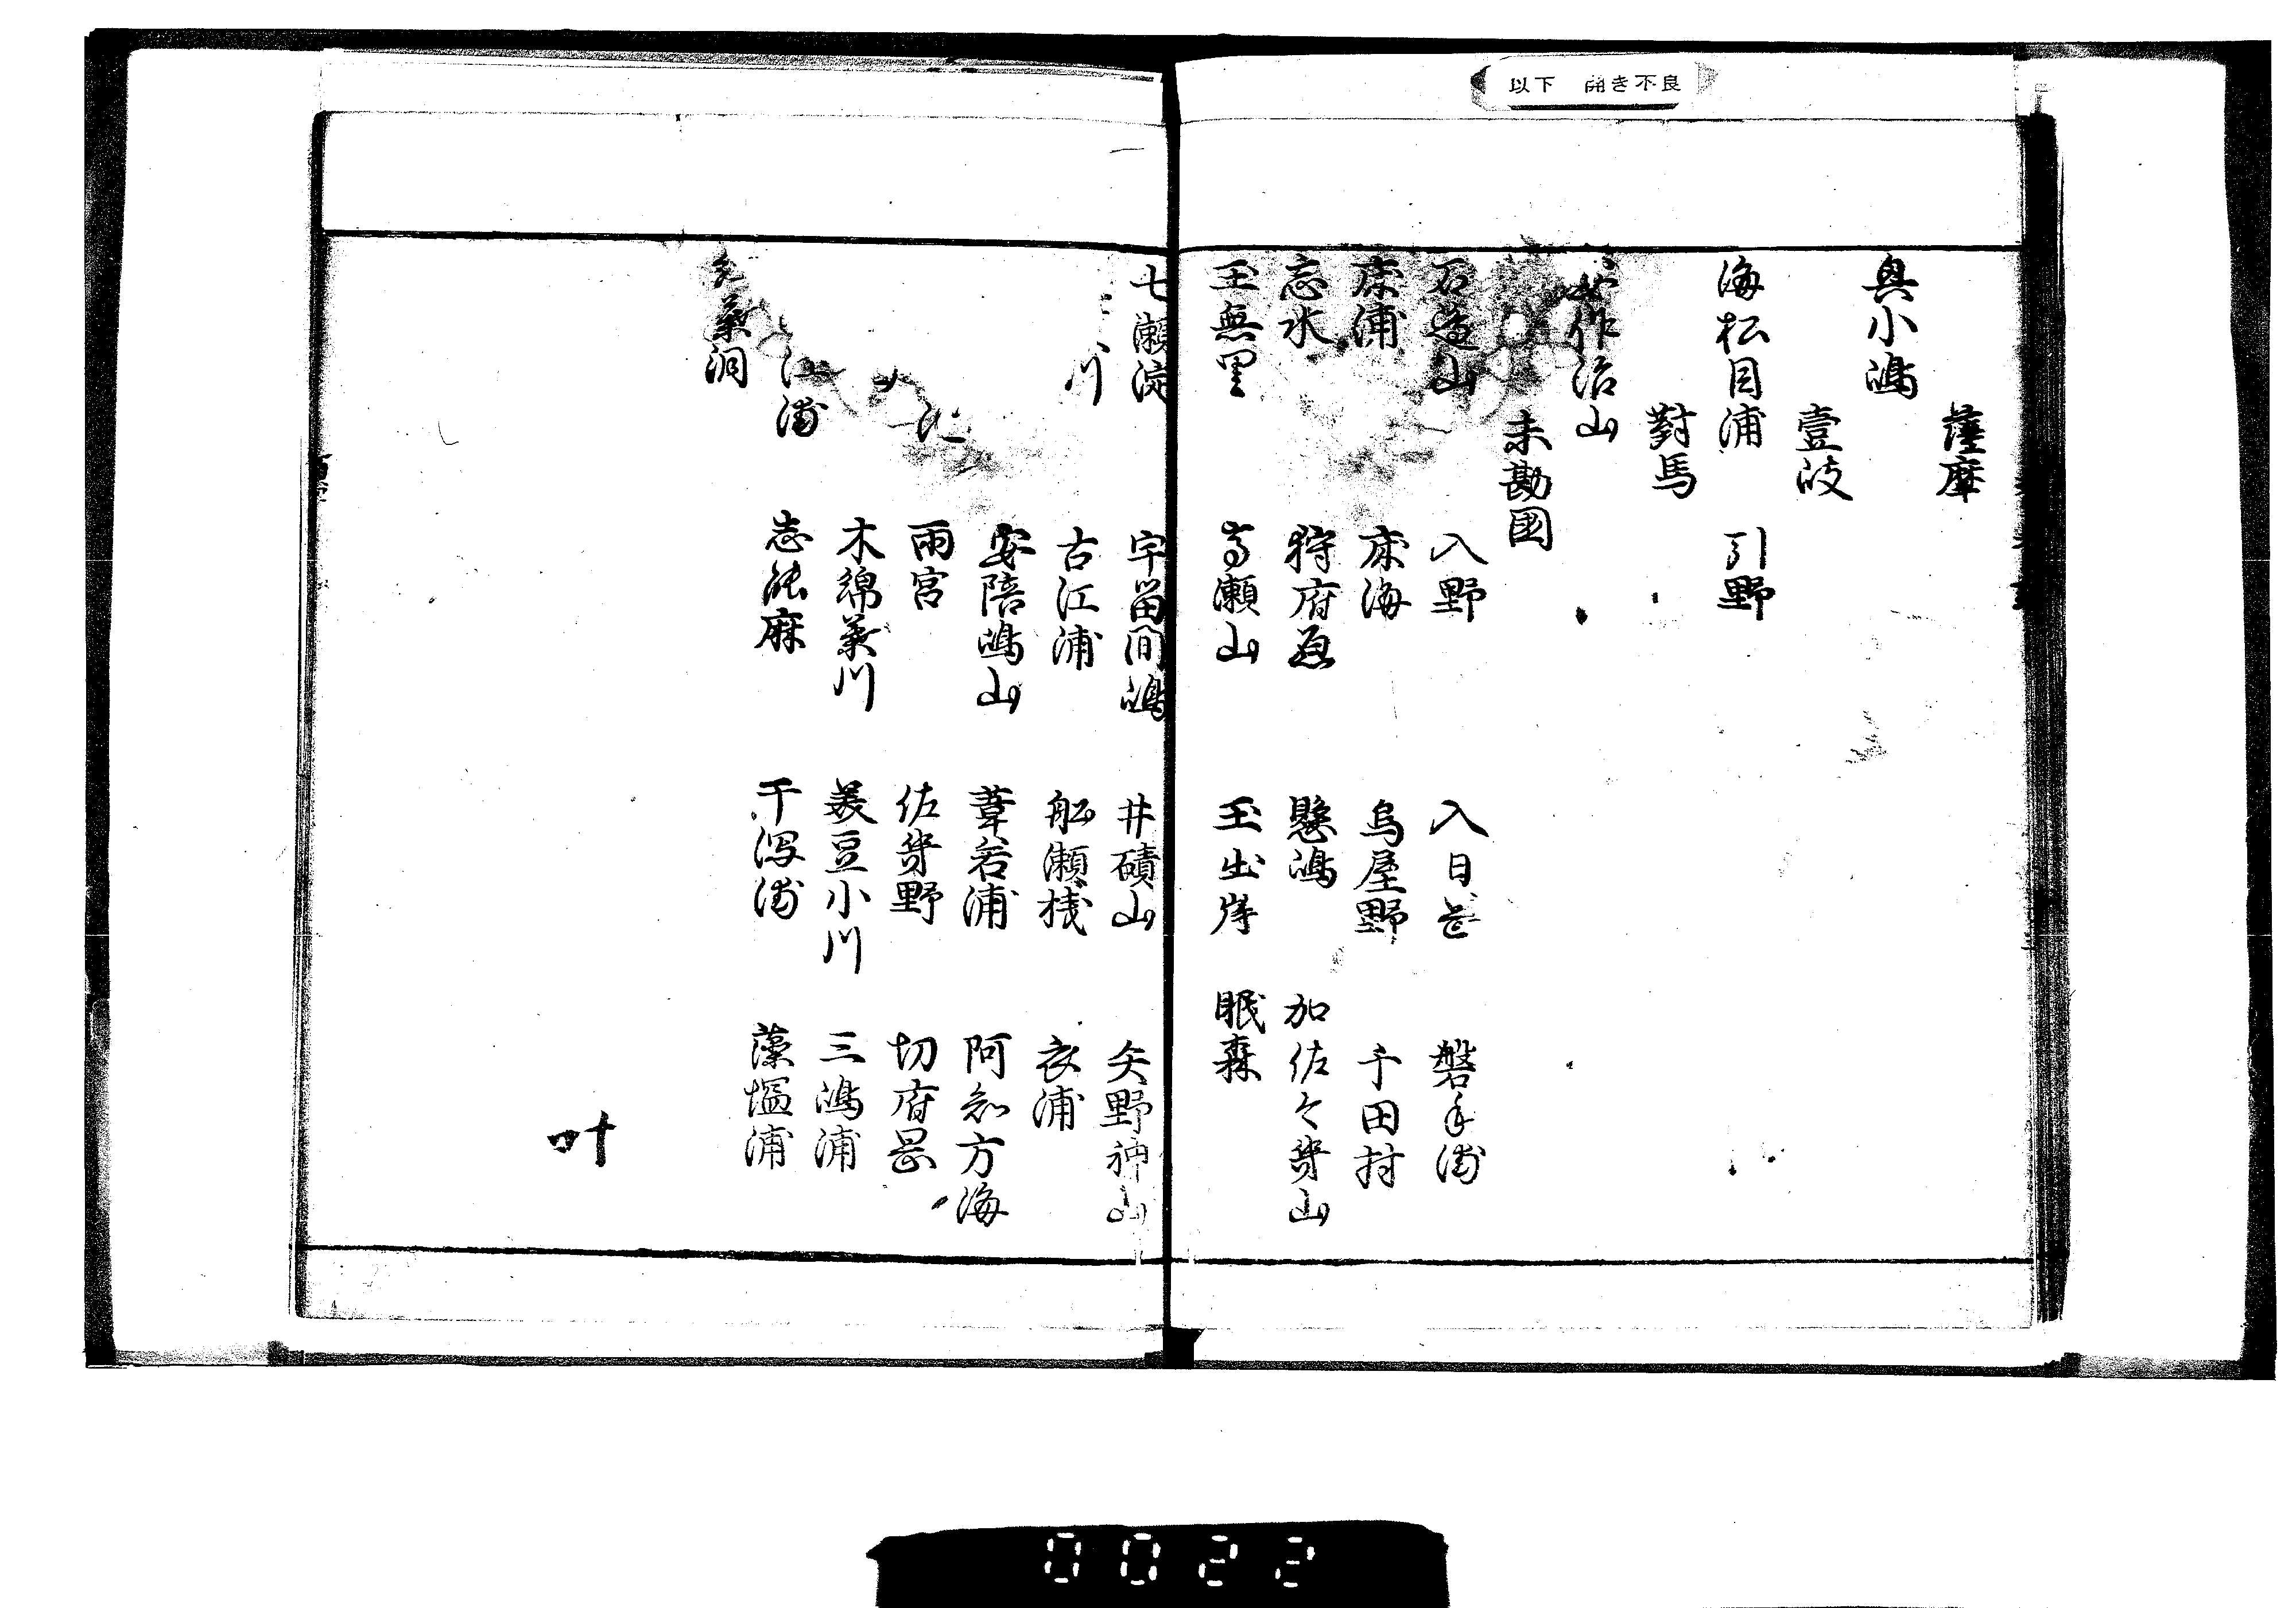 以下 開き不良
薩摩
奥小嶋
壹岐
海松目浦 引野
對馬
作治山
未勘國
石邊山 入野 入日岳 磐手浦
床浦 床海 烏屋野 千田村
忘水 狩府原 懸嶋 加佐々幾山
玉無里 高瀬山 玉出岸 眠森
七瀬淀 宇留間嶋 井磧山 矢野神山
川 古江浦 船瀬桟 衣浦
安陪嶋山 葦若浦 阿知方海
雨宮 佐幾野 切府里
木綿葉川 美豆小川 三嶋浦
江浦 志能麻 干潟浦 藻塩浦
葉洞
叶
0022